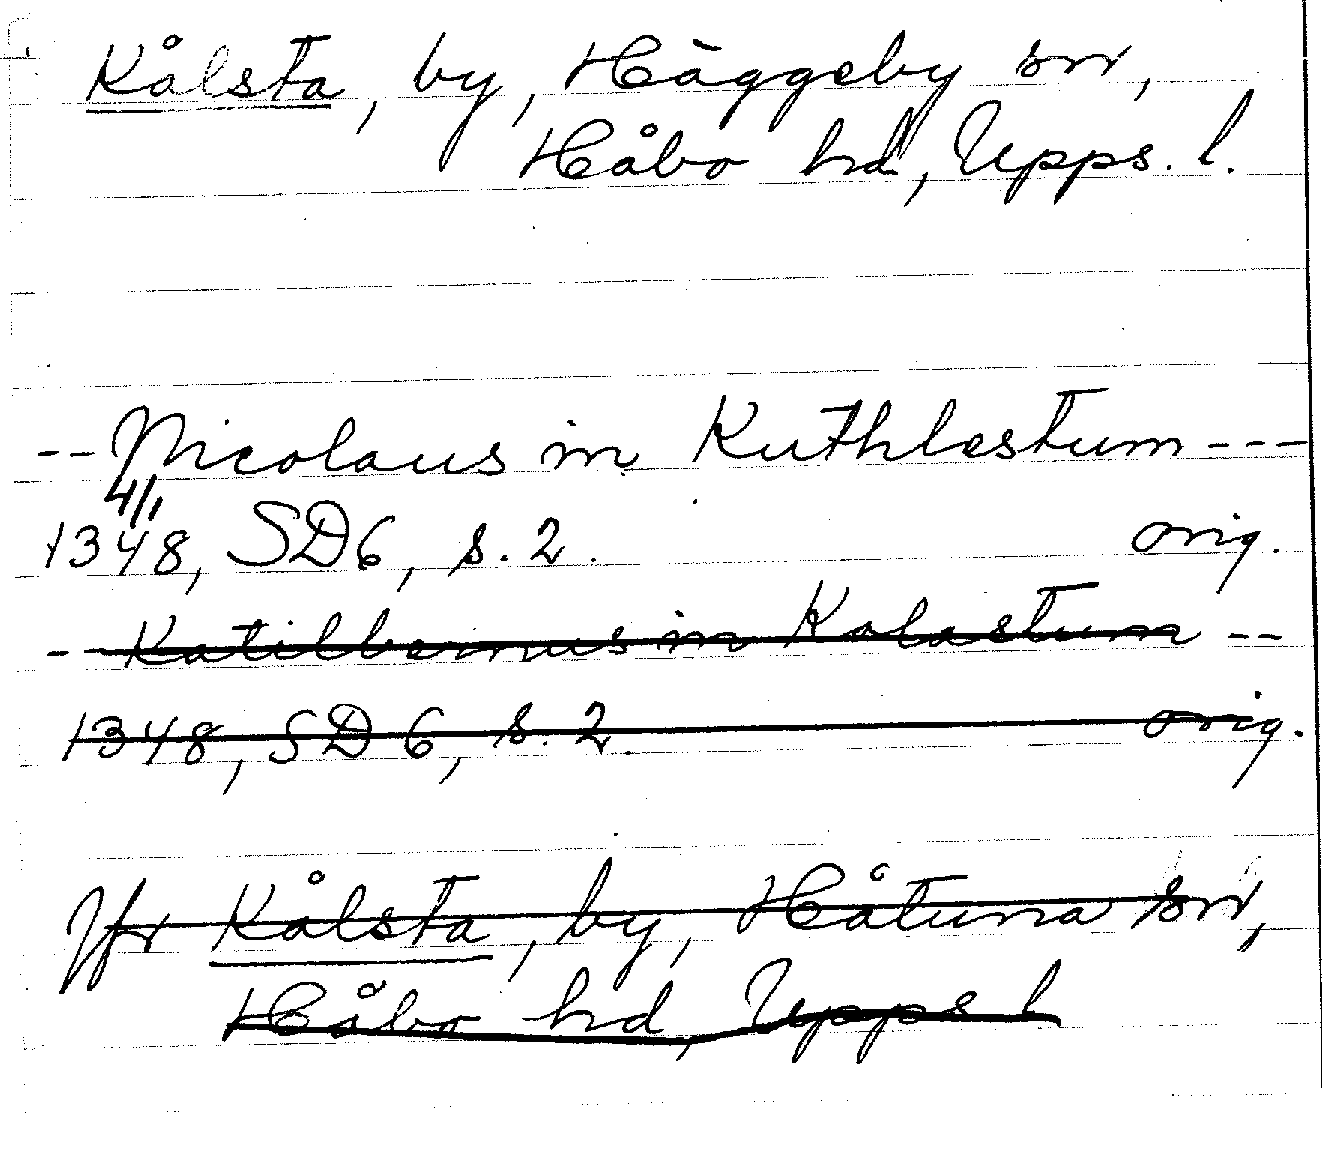 Kålsta, by, Häggeby sn,
Håbo hd, Upps. l.
-- Nicolaus in Kuthlestum ---
4/1
1348, SD6, s. 2. orig.
-- Katilbernus in Kalastum --
1348, SD 6, s. 2. orig.
Jfr Kålsta, by, Håtuna sn,
Håbo hd, Upps l